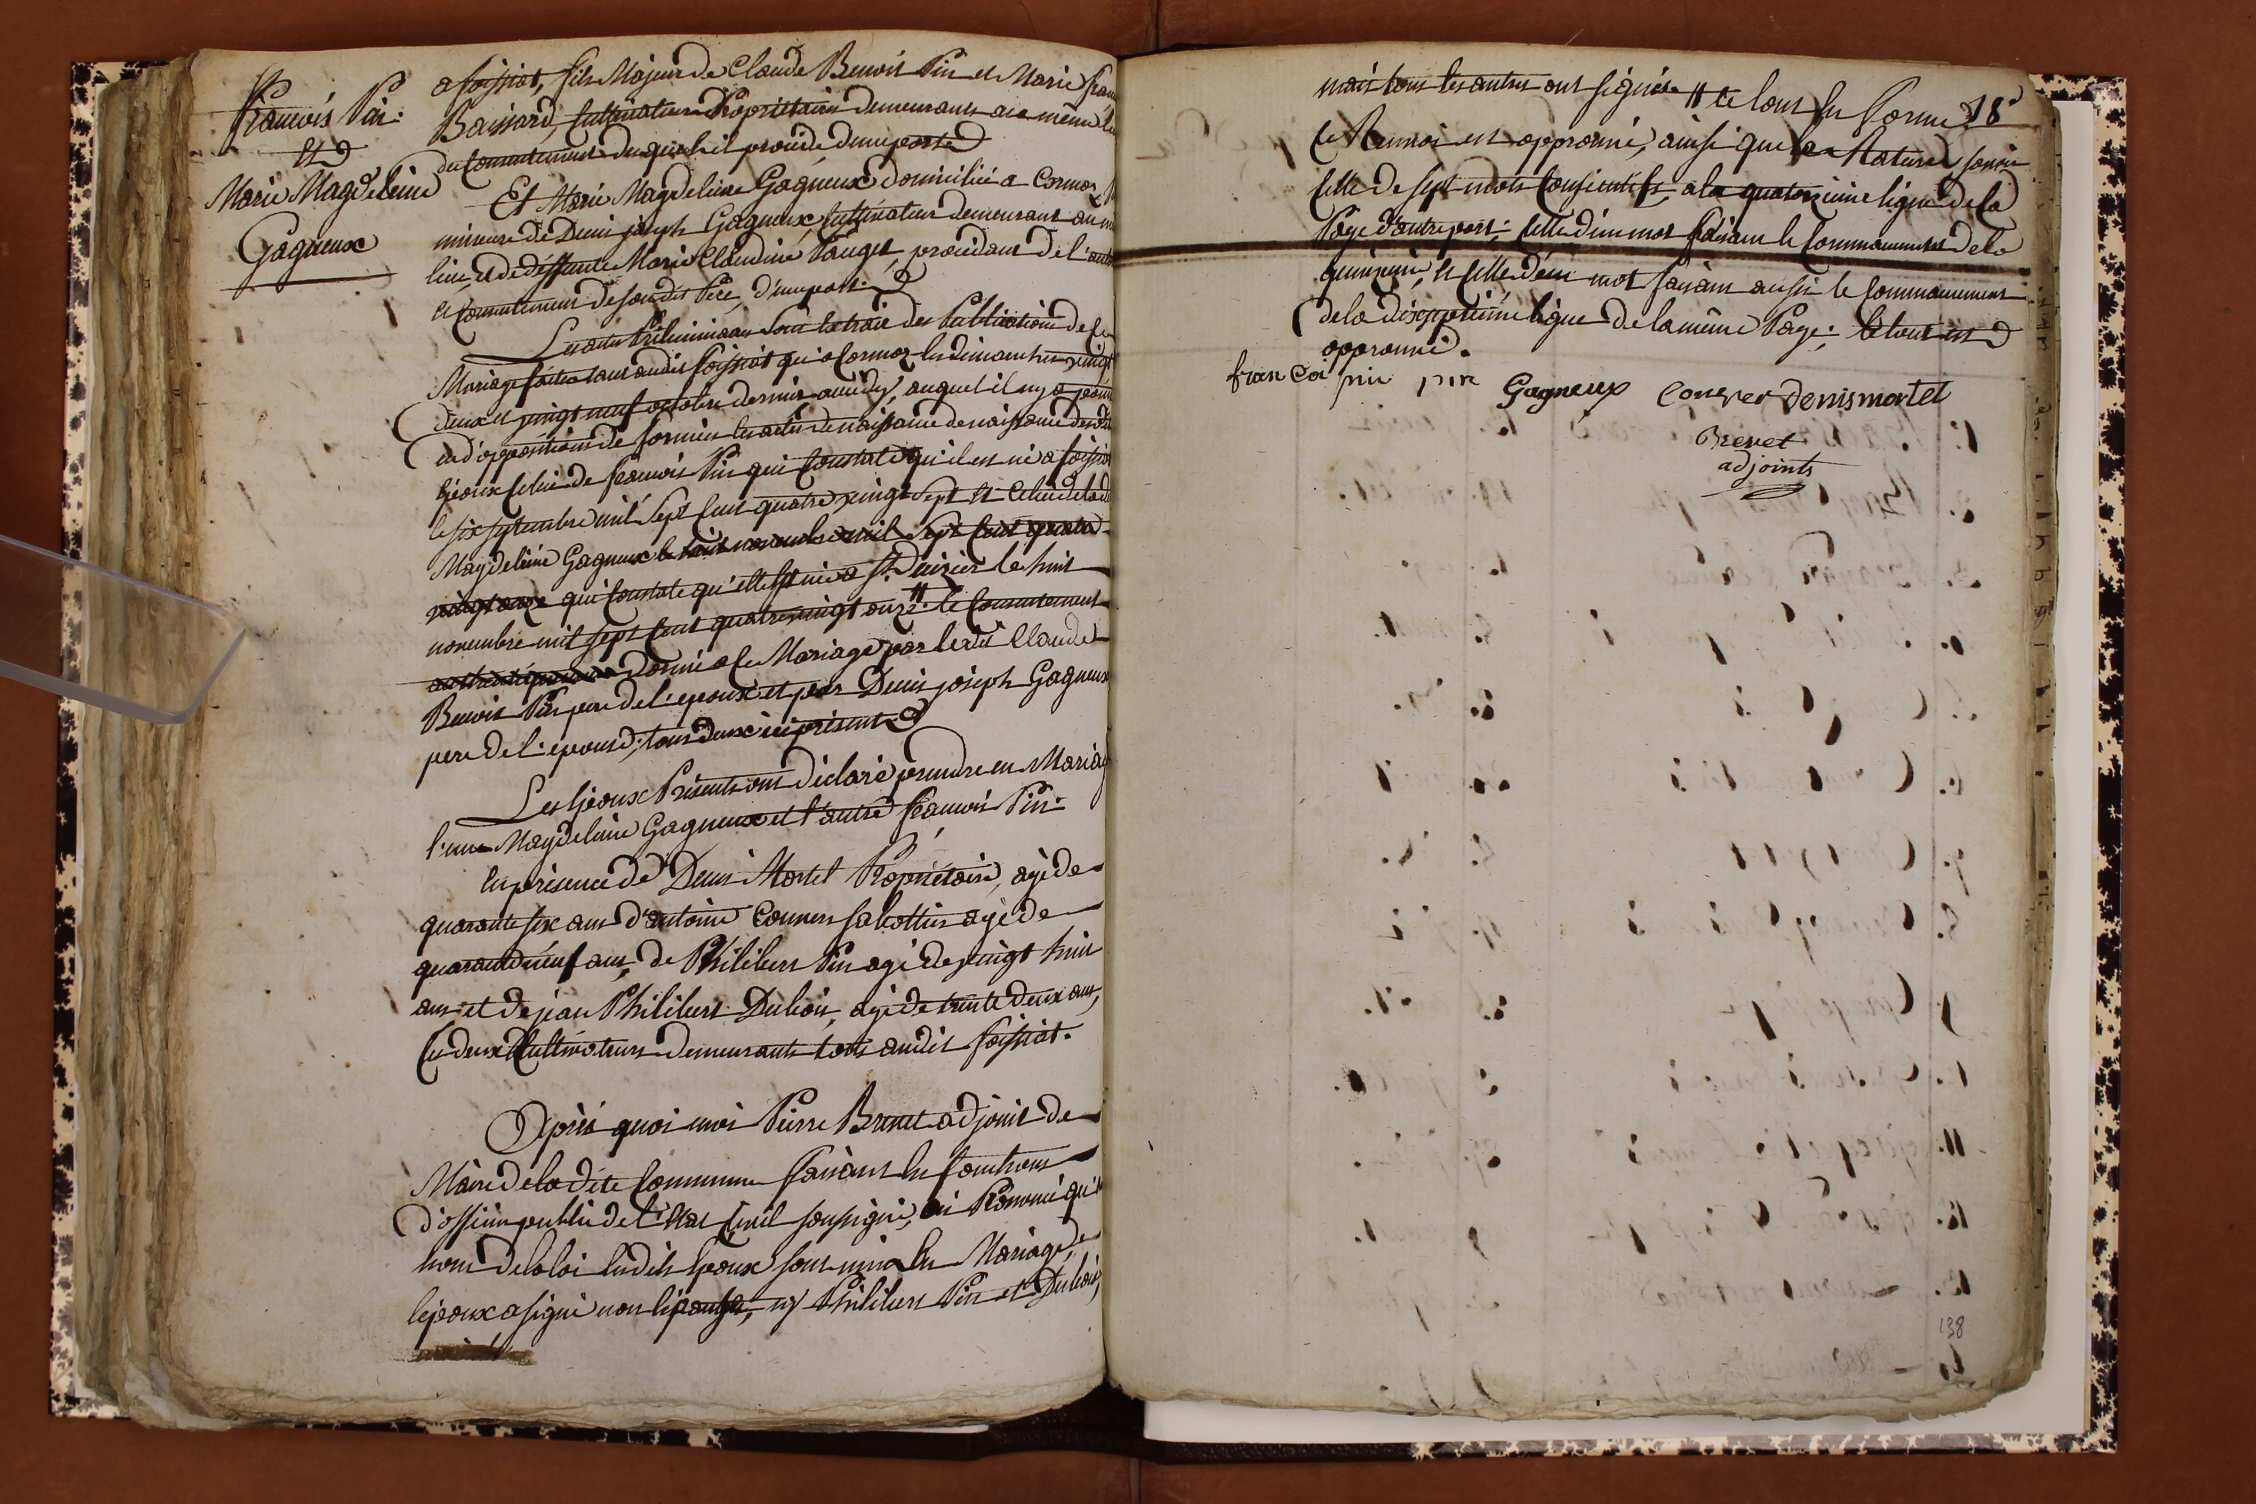 François Pin
Et
Marie Magdeleine
Gagneux
a foissiat, fils Majeur de Claude Benoit Pin et Marie fran
Boissard, Cultivateurs Propriétaires demeurants au même li
du Consentement desquels il procède d'une part
Et Marie Magdeleine Gagneux domiciliée a Cormoz, f
mineure de Denis joseph Gagneux, Cultivateur demeurant au m
lieu, et de deffunte Marie Claudine Pauget, procédant de l'autor
et Consentement de son dit Père, d'une part.
Les actes Préliminaires Sont Extrait des Publications de Ce
Mariage faites tant audit foissiat qu'a Cormoz les dimanches vingt
deux et vingt neuf octobre dernier a midy, auquel il n'y a point
eu d'oppositions de formées les actes de naissance de naissance desdits
Epoux Celui de françois Pin qui Constate qu'il est né a foissiat
le six septembre mil sept Cent quatre vingt sept et Celui de lad
Magdeleine Gagneux le huit novembre mil sept Cent quatre
vingt onze qui Constate qu'elle est née a St. Denizier le huit
novembre mil sept Cent quatre vingt onze # le Consentement
donné a Ce Mariage par ledit Claude
Benoit Pin pere de l'epoux et par Denis joseph Gagneux
pere de l'epouse, tous deux ici présent
Les Epoux Présents ont déclaré prendre en Mariage
l'une Magdeleine Gagneux et l'autre françois Pin.
En présence de Denis Mortel Propriétaire, agé de
quarante six ans d'antoine Convers sabottier agé de
quarante neuf ans, de Philibert Pin agé de vingt huit
ans et de jean Philibert Dubois, agé de trente deux ans,
Ces deux Cultivateurs demeurants tous audit foissiat.
Après quoi moi Pierre Brevet adjoint de
Maire de la dite Commune faisant les fonctions
d'officier public de l'état Civil soussigné, ai Prononcé qu'au
nom de la loi lesdits Epoux sont unis en Mariage, et
l'epoux a signé non l'epouse, ny Philibert Pin et Dubois,
mais tous les autres ont signés. # le tout en forme
18
Ce Renvoi est approuvé, ainsi que la Rature savoir
Celle de sept mots Consecutifs, a la quatorzième ligne de la
Page d'autre part; Celle d'un mot faisant le Commencement de la
quinzième, et Celle d'un mot faisant aussi le Commencement
de la dixseptième ligne de la même Page; le tout est
approuvé.
francoi pin pin Gagneux Conver Denis mortel
Brevet
adjoint
138